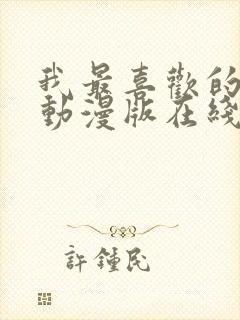 我最喜歡的
動漫版在綫
許鍾民